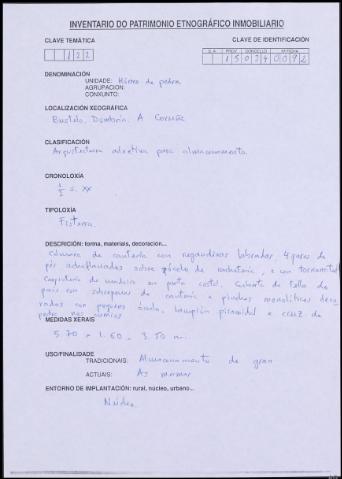 INVENTARIO DO PATRIMONIO ETNOGRÁFICO INMOBILIARIO
CLAVE TEMÁTICA CLAVE DE IDENTIFICACIÓN
1 2 2
C.A. PROV. CONCELLO Nº FICHA
1 5 0 3 4 0 0 9 2
DENOMINACIÓN
UNIDADE: Hórreo de pedra
AGRUPACIÓN:
CONXUNTO:
LOCALIZACIÓN XEOGRÁFICA
Bustelo, Dumbría. A Coruña
CLASIFICACIÓN
Arquitectura adxetiva para almacenamento.
CRONOLOXÍA
1/2 s. XX
TIPOLOXÍA
Fisterra.
DESCRICIÓN: forma, materiais, decoración...
Cámara de cantería con labradas, 4 pares de
pés sobre de cachotería, e un tornarratos
Carpintería de madeira en porta costal. Cuberta de tella do
país con de cantería e piñóns monolíticos deco
rados con pequeno óculo, piramidal e cruz de
pedra nos cumios
MEDIDAS XERAIS
5.70 x 1.60 x 3.50 m.
USO/FINALIDADE
TRADICIONAIS: Almacenamento de gran
ACTUAIS: As mesmas
ENTORNO DE IMPLANTACIÓN: rural, núcleo, urbano...
Núcleo